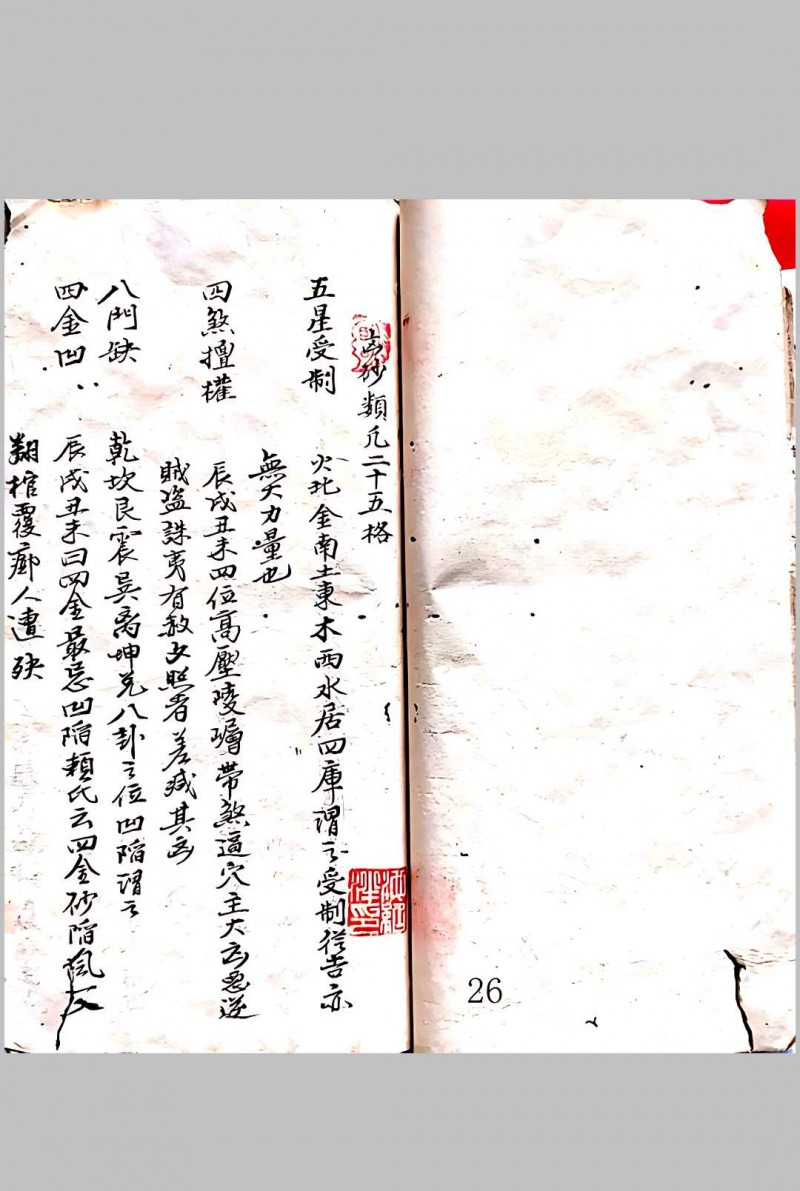 砂類凡二十五格
五星受制
火北金南土東木西水居四庫謂之受制縱吉亦
無大力量也
四煞擅權
辰戌丑未四位高壓陵嶒帶煞逼穴主大凶惡逆
賊盜誅夷有救文照者差減其凶
八門缺
乾坎艮震巽离坤兌八卦之位凹陷謂之
四金凹
辰戌丑未曰四金最忌凹陷賴氏云四金砂陷風
翻棺覆 人遭殃
26